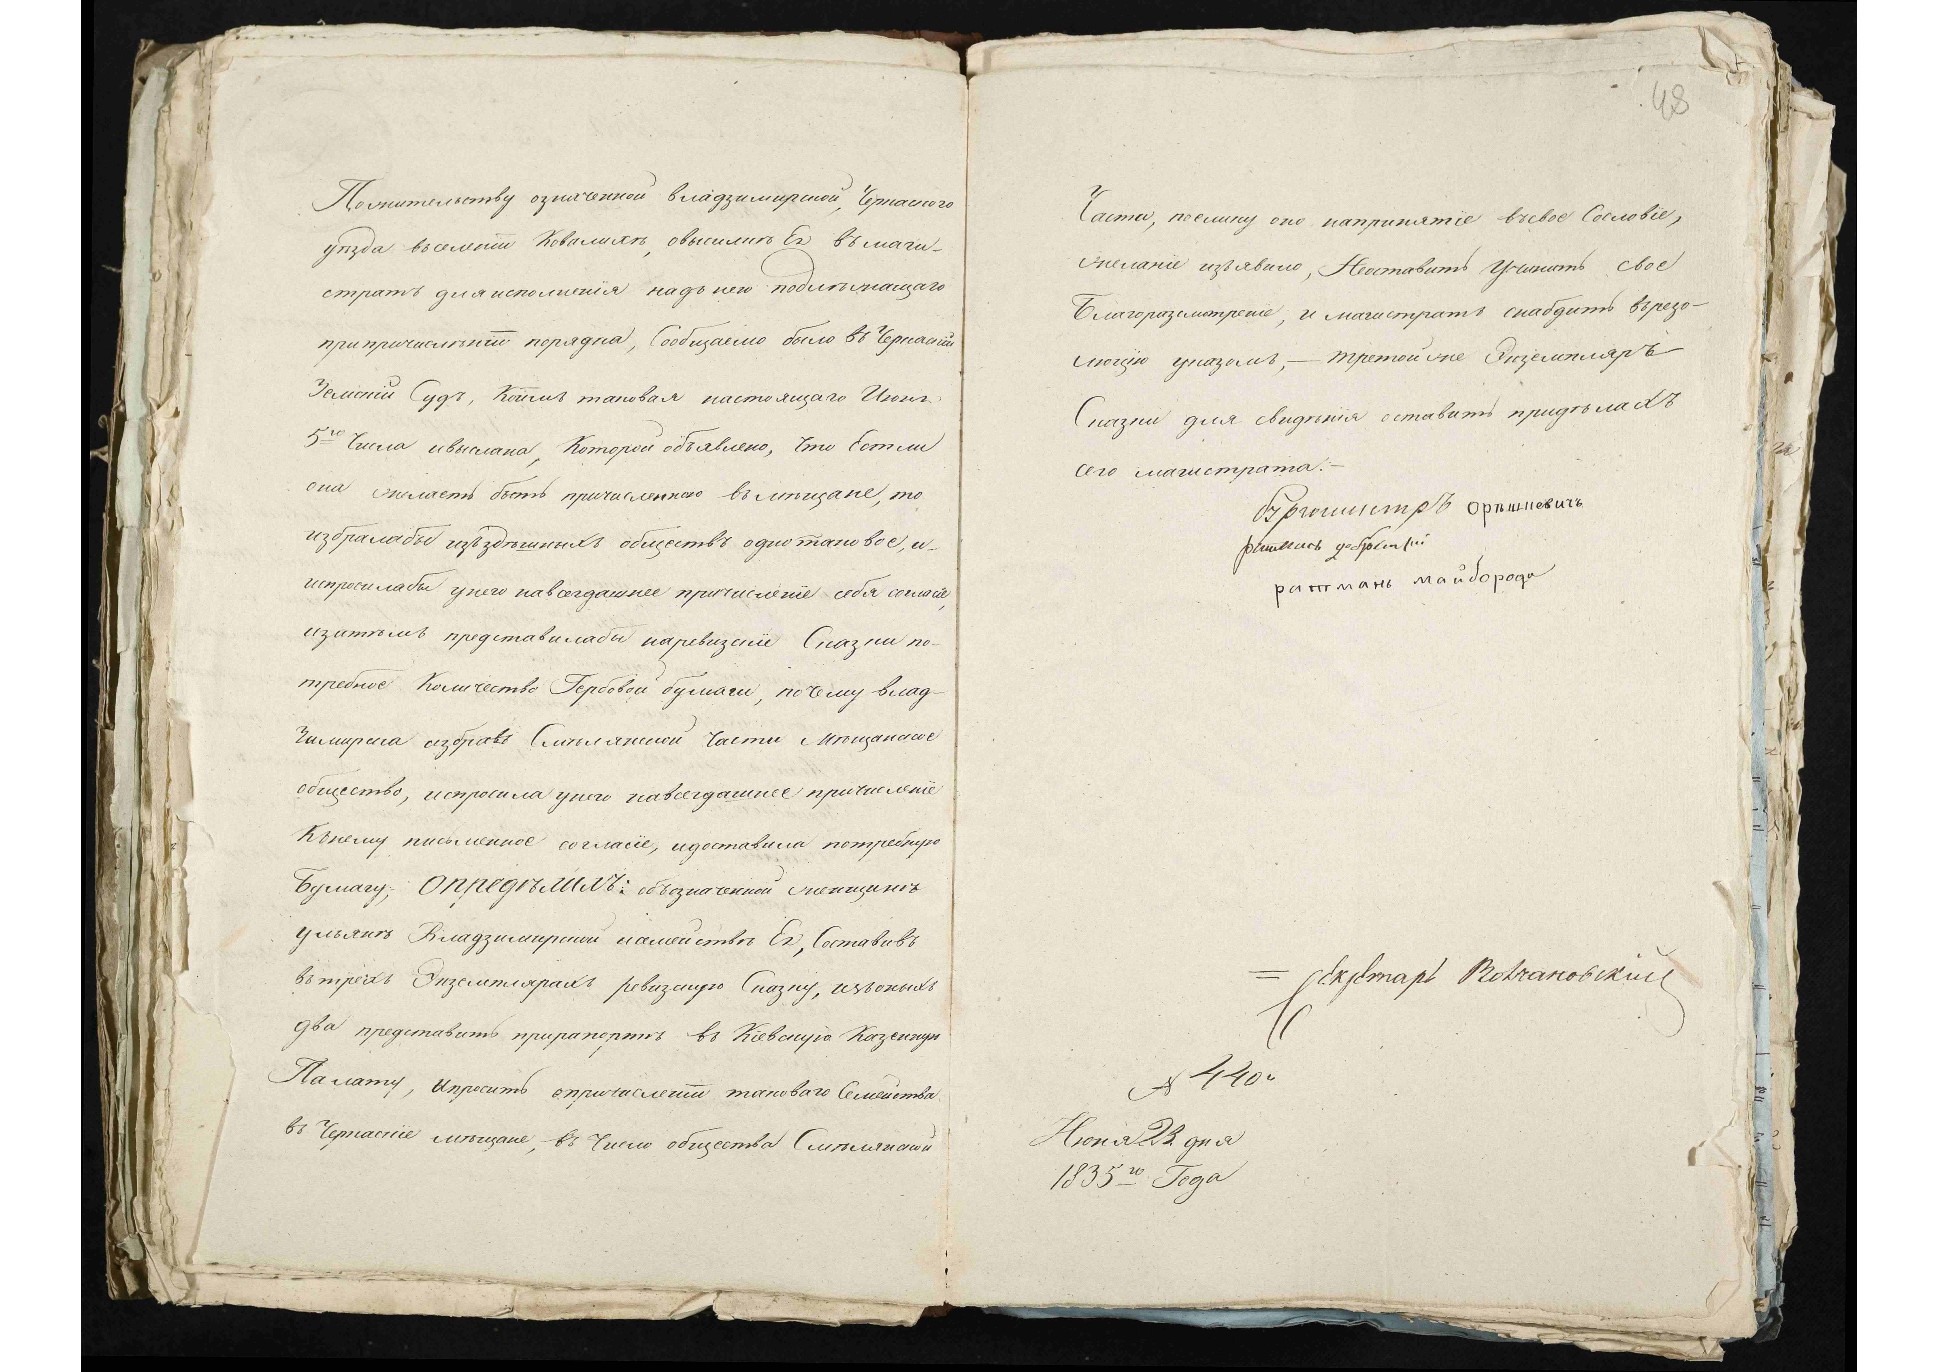 Пожительству означенной владзимирской, Черкаского
уѣзда въселеніи Ковалихѣ, овысилкѣ Ея въ маги-
стратъ дляисполненія надънею подлѣжащаго
припричисленіи порядка, Сообщаемо было въ Черкаскій
Земскій Судъ, Коимъ таковая настоящаго Июня
5го Числа ивыслана, Которой объявлено, что Естли
она желаетъ быть причисленною въ мѣщане, то
избралабы изъздѣшныхъ обществъ одно таковое, и-
испросилабы унего навсегдашнее причисленіе себя согласіе,
изатѣмъ представилабы наревизскіе Сказки по-
требное Количество Гербовой бумаги, почему влад-
зимирска избравъ Смѣлянской Части мѣщанское
общество, испросила унего навсегдашнее причисленіе
Кънему письменное согласіе, идоставила потребную
Бумагу; ОПРЕДѢЛИЛЪ: обозначенной женщинѣ
ульянѣ Владзимирской исемействѣ Ея, Составивъ
въ трехъ Экземплярахъ ревизскую Сказку, изъоныхъ
два представить прирапортѣ въ Кіевскую Казенную
Палату, Ипросить опричисленіи таковаго Семейства
въ Черкаскіе мѣщане, въ Число общества Смѣлянской
48
Части, поелику оно напринятіе въсвое Сословіе,
желаніе изъявило, Неоставить Учинить свое
Благоразсмотреніе, и магистратъ снабдить върезо-
люцію указомъ, — третой же Экземпляръ
Сказки для свидѣнія оставить придѣлахъ
сего магистрата.-
бургомистръ орѣшкевичъ
ратманъ
ратманъ майборода
= Секретарь Волчановскій
№ 440.
Июня 23 дня
1835го Года